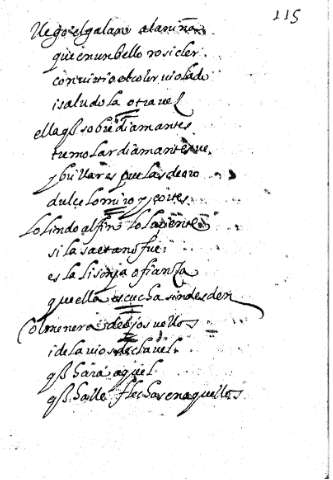 115
llego el galan a la niña
que en un bello rosicler
convirtio el color violado
i saludola otra vez
ella q sobre diamantes
tumolar diamantes ve
y brillares que las de oro
dulçe lo miro y cortes
lo lindo al fin lo luçiente
si la saeta no fue
es la lisonja ofiança
que ella escucha sin desden
Colmenera de ojos vellos
i de lavios de clavel
q hara aquel
q halle flechas en aquellos